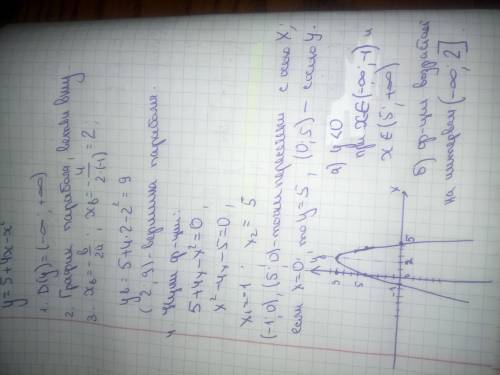 y = 5 + 4x - x²
1. D(y) = (-∞; +∞)
2. График парабола, ветви вниз
3. xв = - b/2a ; xв = - 4/(2·(-1)) = 2;
yв = 5 + 4·2 - 2² = 9
(2; 9) - вершина параболы.
4. Нули ф-ции:
5 + 4x - x² = 0;
x² - 4x - 5 = 0;
x₁ = -1 ; x₂ = 5
(-1; 0), (5; 0) - точки пересечения с осью X;
если x = 0, то y = 5, (0; 5) - с осью Y.
а) y < 0
при x ∈ (-∞; -1) и
x ∈ (5; +∞)
б) ф-ция возрастает
на интервале (-∞; 2]
y
9
5
-1
0
2
5
x